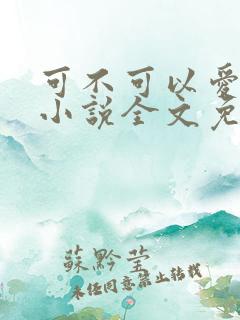 可不可以愛
小說全文免
蘇黔莹
未经同意禁止转载